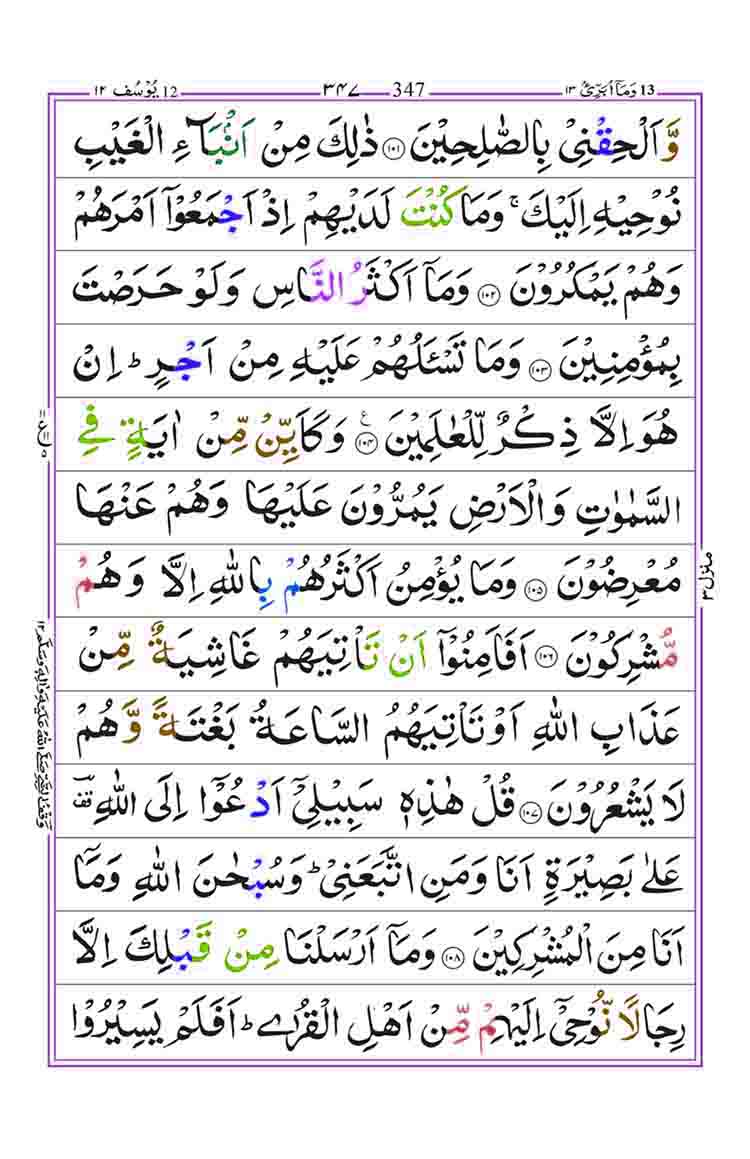 13 وَمَآ اُبَرِّئُ ١٣ 347 ٣٤٧ 12 يُوْسُف ١٢
وَّاَلْحِقْنِىْ بِالصّٰلِحِيْنَ ﴿١٠١﴾ ذٰلِكَ مِنْ اَنْۢبَآءِ الْغَيْبِ
نُوْحِيْهِ اِلَيْكَ ۚ وَمَا كُنْتَ لَدَيْهِمْ اِذْ اَجْمَعُوْۤا اَمْرَهُمْ
وَهُمْ يَمْكُرُوْنَ ﴿١٠٢﴾ وَمَاۤ اَكْثَرُ النَّاسِ وَلَوْ حَرَصْتَ
بِمُؤْمِنِيْنَ ﴿١٠٣﴾ وَمَا تَسْـَٔلُهُمْ عَلَيْهِ مِنْ اَجْرٍ ؕ اِنْ
هُوَ اِلَّا ذِكْرٌ لِّلْعٰلَمِيْنَ ﴿١٠٤﴾ ع وَكَاَيِّنْ مِّنْ اٰيَةٍ فِى
السَّمٰوٰتِ وَالْاَرْضِ يَمُرُّوْنَ عَلَيْهَا وَهُمْ عَنْهَا
مُعْرِضُوْنَ ﴿١٠٥﴾ وَمَا يُؤْمِنُ اَكْثَرُهُمْ بِاللّٰهِ اِلَّا وَهُمْ
مُّشْرِكُوْنَ ﴿١٠٦﴾ اَفَاَمِنُوْۤا اَنْ تَاْتِيَهُمْ غَاشِيَةٌ مِّنْ
عَذَابِ اللّٰهِ اَوْ تَاْتِيَهُمُ السَّاعَةُ بَغْتَةً وَّهُمْ
لَا يَشْعُرُوْنَ ﴿١٠٧﴾ قُلْ هٰذِهٖ سَبِيْلِىْۤ اَدْعُوْۤا اِلَى اللّٰهِ ؔقف
عَلٰى بَصِيْرَةٍ اَنَا وَمَنِ اتَّبَعَنِىْ ؕ وَسُبْحٰنَ اللّٰهِ وَمَاۤ
اَنَا مِنَ الْمُشْرِكِيْنَ ﴿١٠٨﴾ وَمَاۤ اَرْسَلْنَا مِنْ قَبْلِكَ اِلَّا
رِجَالًا نُّوْحِىْۤ اِلَيْهِمْ مِّنْ اَهْلِ الْقُرٰى ؕ اَفَلَمْ يَسِيْرُوْا
منزل ٣
وقف النبي صلى الله عليه واله وسلم ١٢